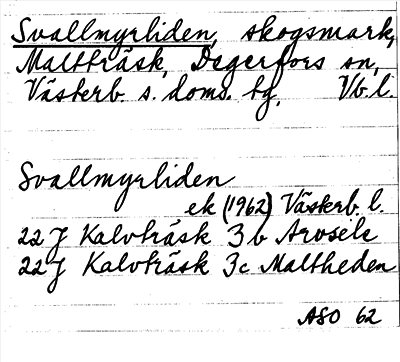 Svallmyrliden, skogsmark,
Maltträsk, Degerfors sn,
Västerb. s. doms. tg, Vb. l.
Svallmyrliden
ek (1962) Västerb. l.
22 J Kalvträsk 3 b Arvsele
22 J Kalvträsk 3 c Maltheden
ASO 62